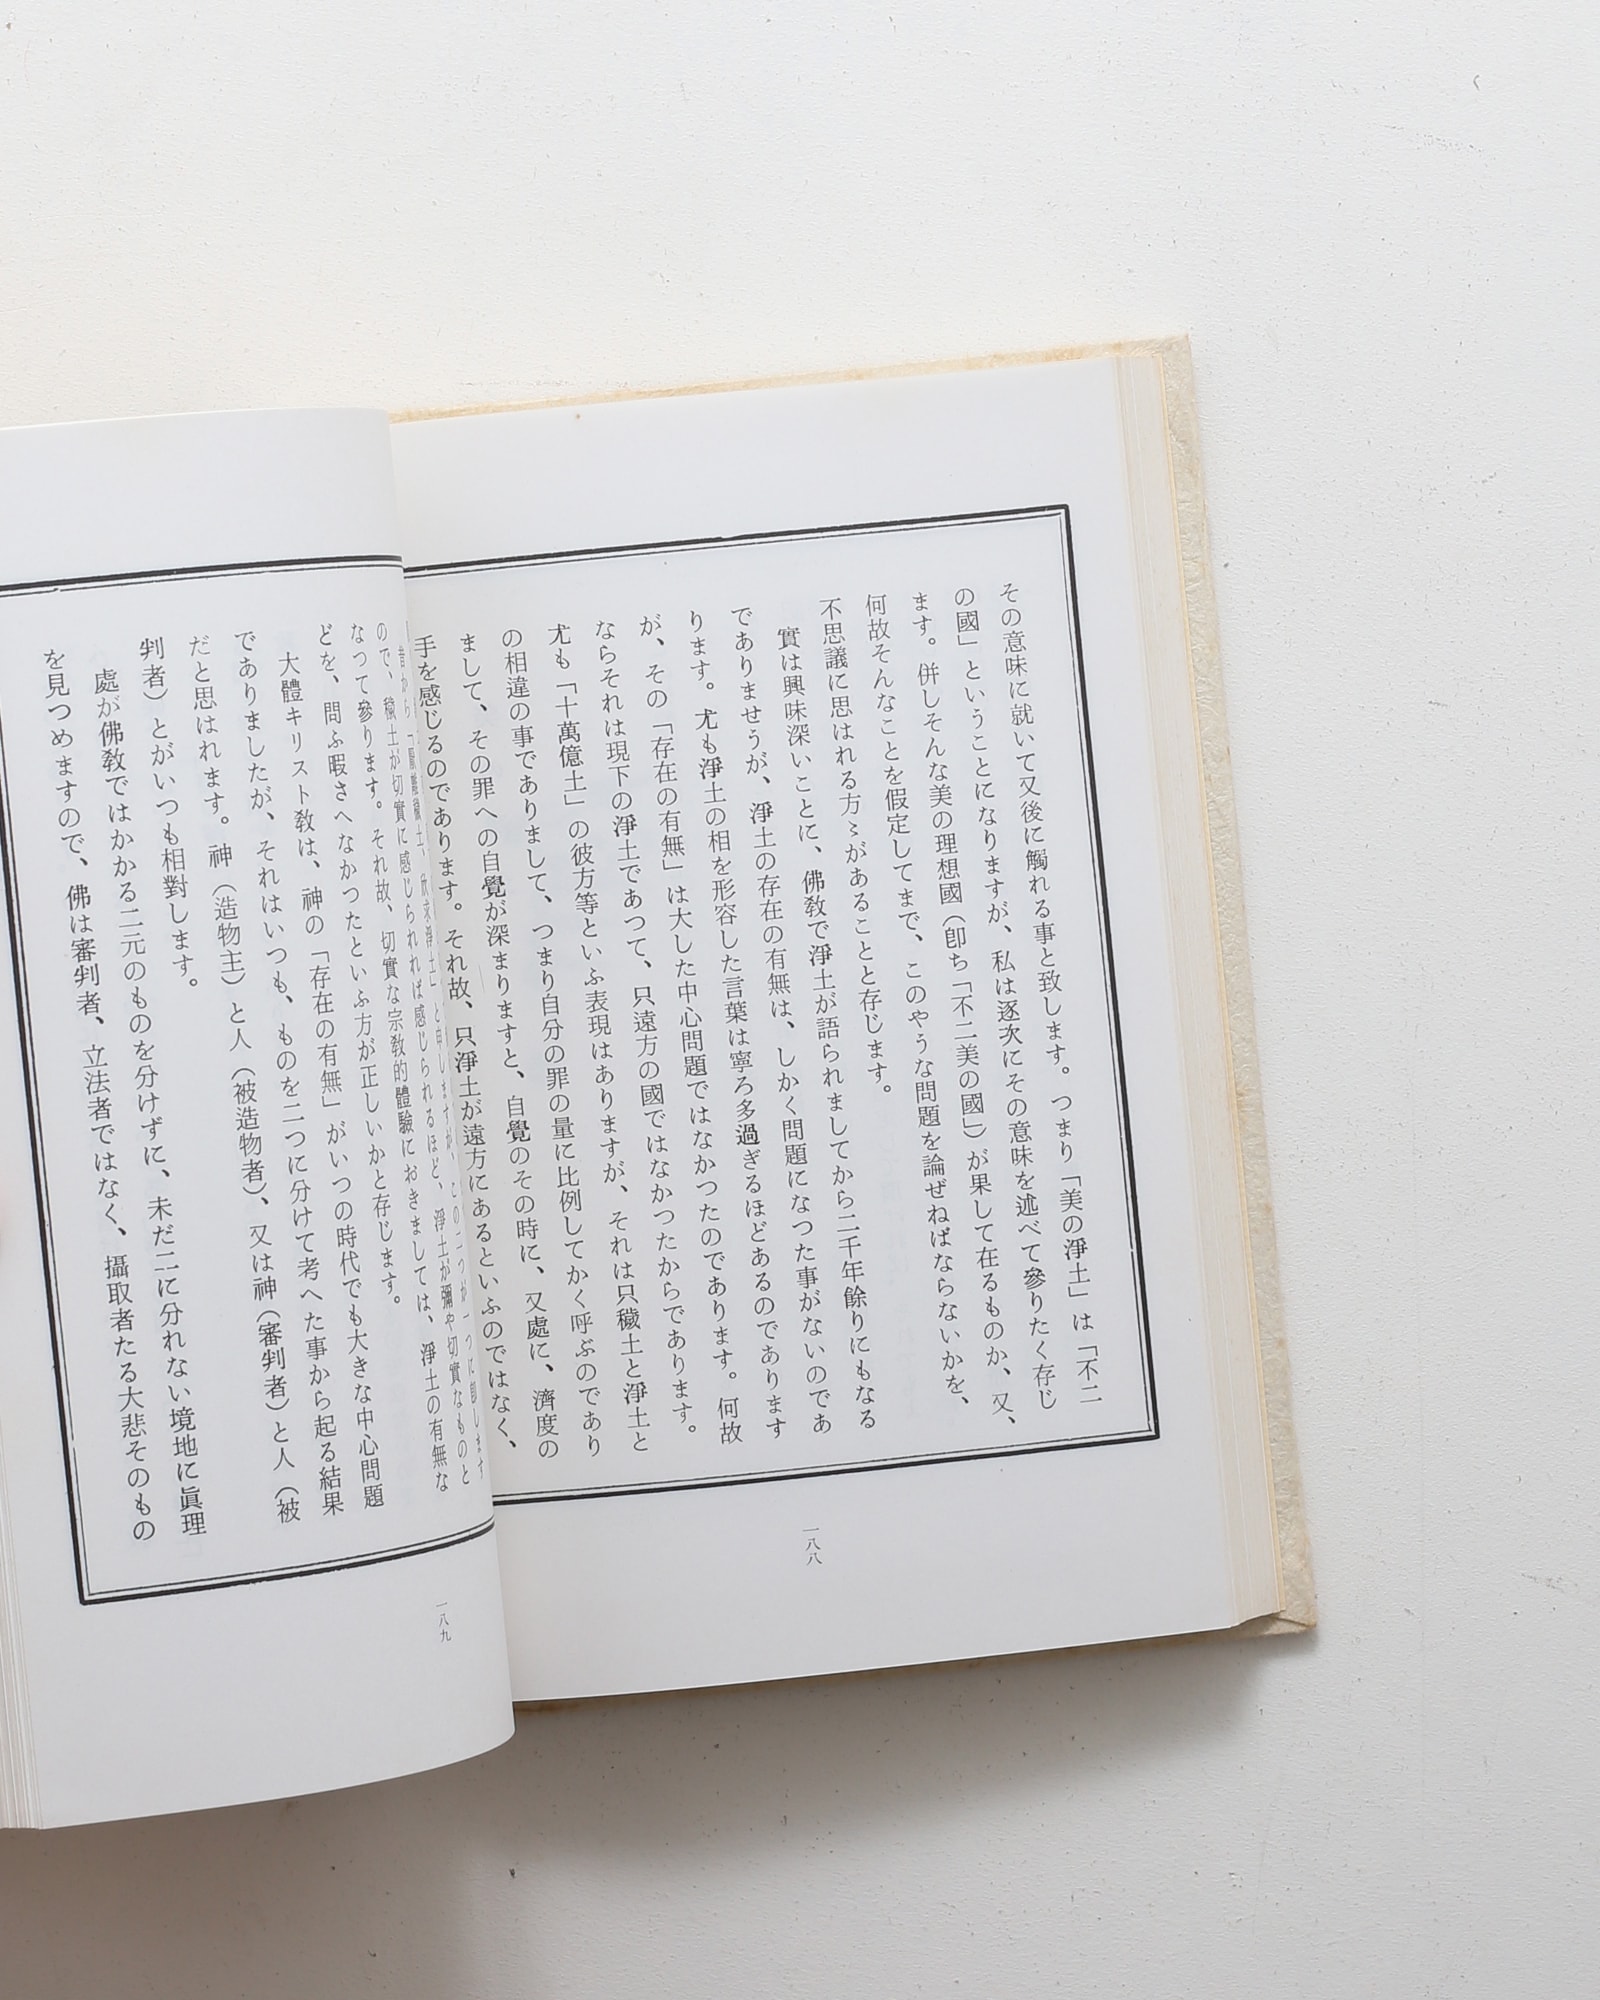 その意味に就いて又後に觸れる事と致します。つまり「美の淨土」は「不二
の國」ということになりますが、私は逐次にその意味を述べて參りたく存じ
ます。併しそんな美の理想國（卽ち「不二美の國」）が果して在るものか、又、
何故そんなことを假定してまで、このやうな問題を論ぜねばならないかを、
不思議に思はれる方〻があることと存じます。
實は興味深いことに、佛敎で淨土が語られましてから二千年餘りにもなる
でありませうが、淨土の存在の有無は、しかく問題になつた事がないのであ
ります。尤も淨土の相を形容した言葉は寧ろ多過ぎるほどあるのであります
が、その「存在の有無」は大した中心問題ではなかつたのであります。何故
ならそれは現下の淨土であつて、只遠方の國ではなかつたからであります。
尤も「十萬億土」の彼方等といふ表現はありますが、それは只穢土と淨土と
の相違の事でありまして、つまり自分の罪の量に比例してかく呼ぶのであり
まして、その罪への自覺が深まりますと、自覺のその時に、又處に、濟度の
手を感じるのであります。それ故、只淨土が遠方にあるといふのではなく、
一八八
昔から「厭離穢土、欣求淨土」と申しますが、この二つが一つに卽します
ので、穢土が切實に感じられれば感じられるほど、淨土が彌や切實なものと
なつて參ります。それ故、切實な宗敎的體驗におきましては、淨土の有無な
どを、問ふ暇さへなかつたといふ方が正しいかと存じます。
大體キリスト敎は、神の「存在の有無」がいつの時代でも大きな中心問題
でありましたが、それはいつも、ものを二つに分けて考へた事から起る結果
だと思はれます。神（造物主）と人（被造物者）、又は神（審判者）と人（被
判者）とがいつも相對します。
處が佛敎ではかかる二元のものを分けずに、未だ二に分れない境地に眞理
を見つめますので、佛は審判者、立法者ではなく、攝取者たる大悲そのもの
一八九